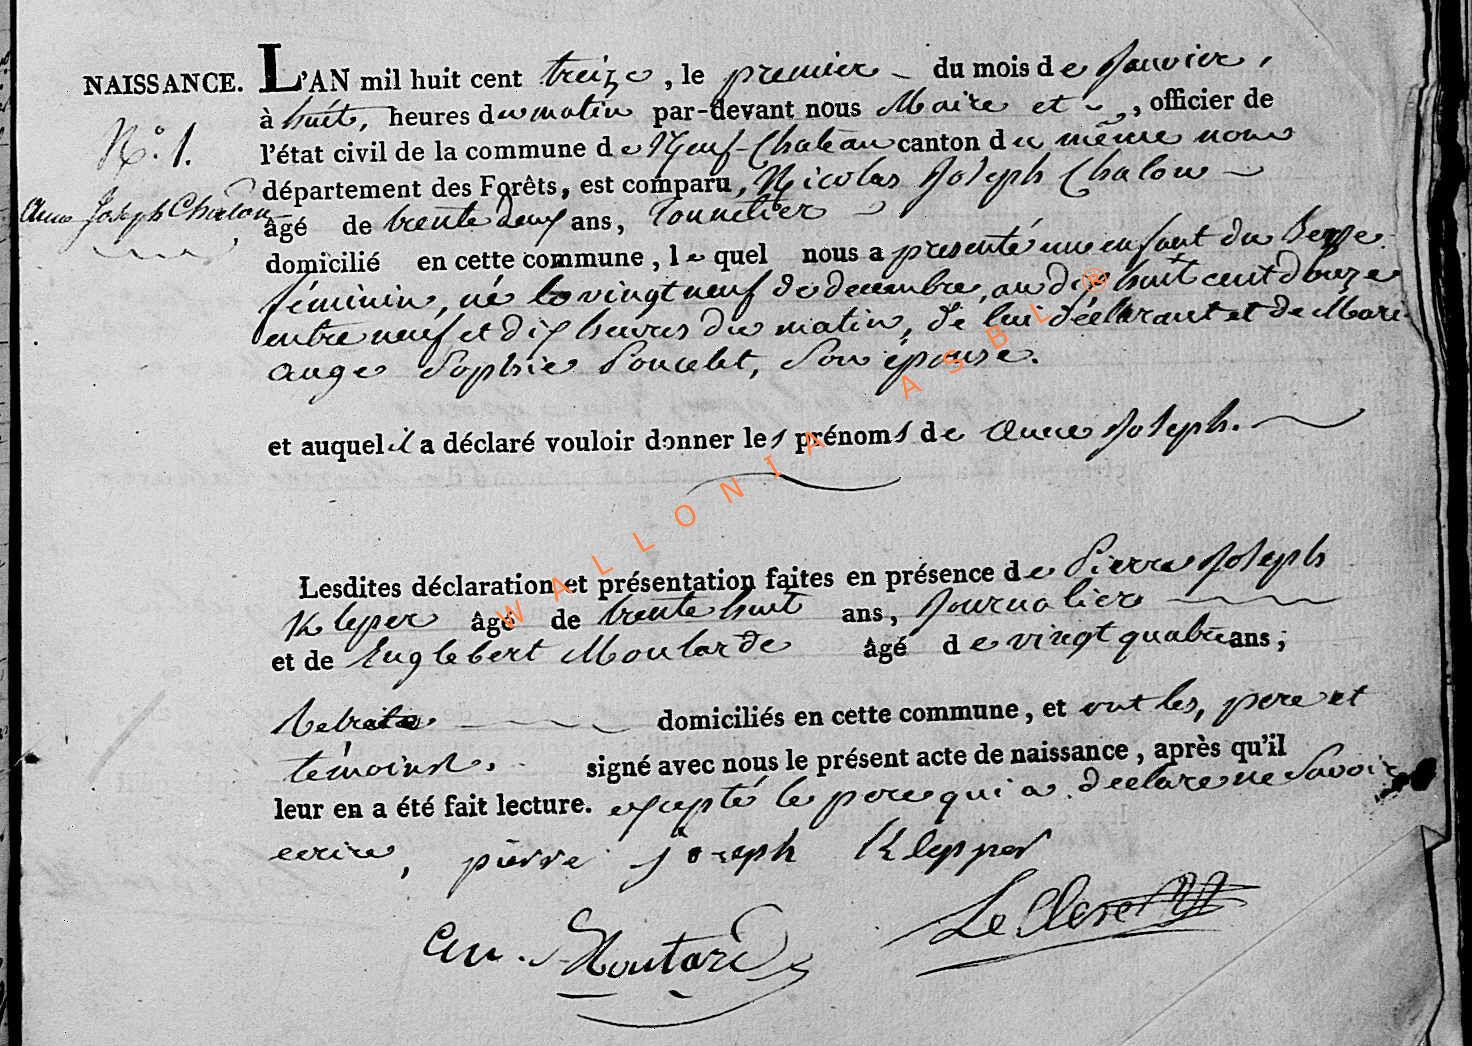 NAISSANCE. L'AN mil huit cent treize, le premier du mois de Janvier,
à huit, heures du matin par-devant nous Maire et, officier de
N.° 1. l'état civil de la commune de Neuf-Chateau canton du même nom
département des Forêts, est comparu, Nicolas Joseph Chalon
Anne Joseph Chalon âgé de trente neuf ans, Tonnelier
domicilié en cette commune, le quel nous a presenté une enfant du Sexe
féminin, né le vingt neuf de decembre, an dix huit cent douze
entre neuf et dix heures du matin, de lui déclarant et de Mari
ange Sophie Poncelet, Son épouse.
et auquel il a déclaré vouloir donner les prénoms de Anne Joseph.
Lesdites déclaration et présentation faites en présence de Pierre Joseph
Kleper âgé de trente huit ans, Journalier
et de Englebert Moutarde âgé de vingt quatre ans;
domiciliés en cette commune, et ont les, pere et
témoins. signé avec nous le présent acte de naissance, après qu'il
leur en a été fait lecture. excepté le pere qui a declare ne Savoir
ecrire, pierre joseph Klepper
Moutard
WALLONIA ASBL ®